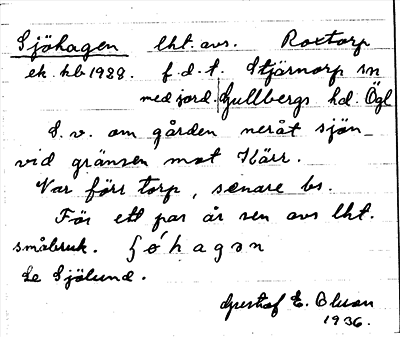 Sjöhagen lht. avs. Roxtorp
ek. kb 1928. f. d. t. Stjärnorp sn
med jord. Gullbergs hd. Ögl
S. v. om gården neråt sjön
vid gränsen mot Kärr.
Var förr torp, senare bs.
För ett par år sen avs lht.
småbruk. ʃǿhagən
Se Sjölund.
Gustaf E. Olsson
1936.